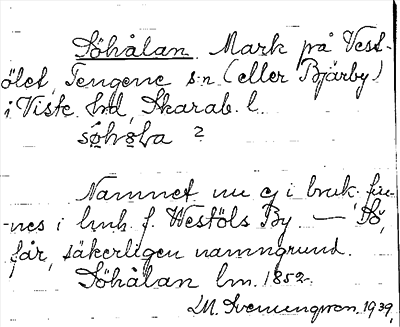 Söhålan. Mark på Vest-
ölet, Tengene s:n (eller Bjärby)
i Viste hd, Skarab. l.
søhøla ?
Namnet nu ej i bruk; fin-
nes i lmh. f. Westöls By. — Sö,
får, säkerligen namngrund.
Söhålan lm. 1852.
1939.